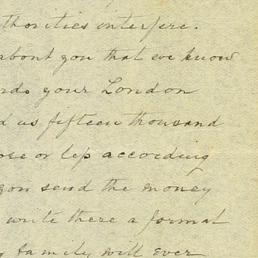 thorities interfere.
about you that we know
rds your London
d us fifteen thousand
ose or lip according
you send the money
write there a formal
family will ever